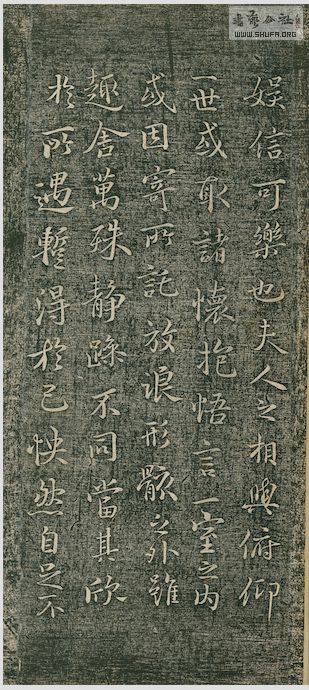 娛信可樂也夫人之相與俯仰
一世或取諸懷抱悟言一室之內
或因寄所託放浪形骸之外雖
趣舍萬殊靜躁不同當其欣
於所遇暫得於己怏然自足不
WWW.SHUFA.ORG